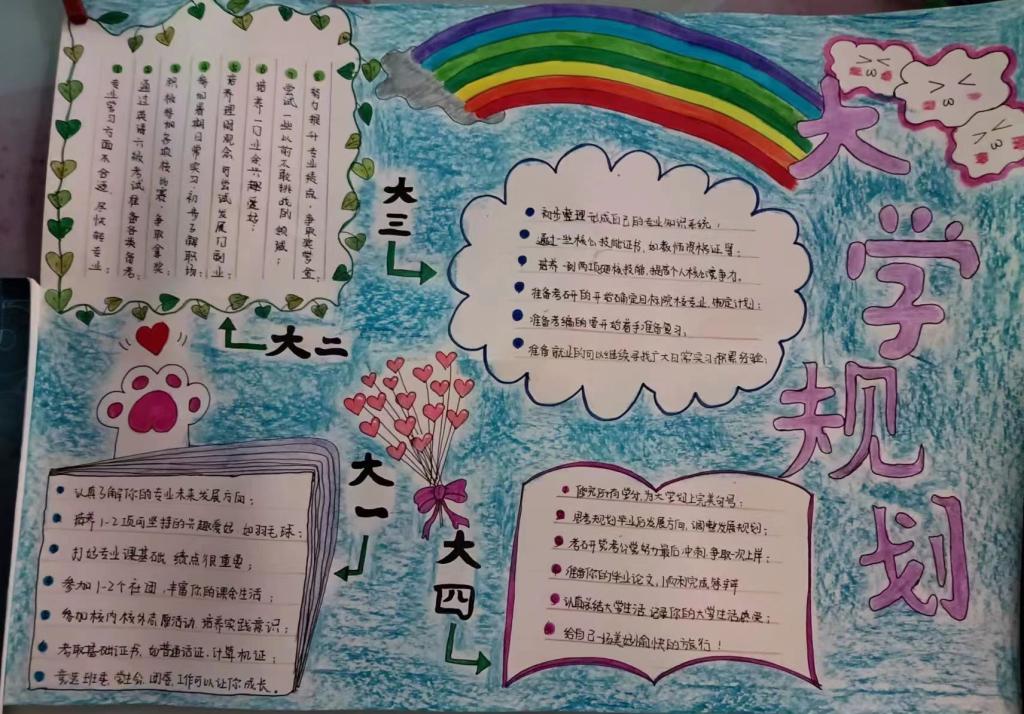 大学规划
大一
认真了解你的专业未来发展方向；
培养1-2项可坚持的兴趣爱好 如羽毛球；
打好专业课基础，绩点很重要；
参加1-2个社团，丰富你的课余生活；
参加校内校外志愿活动，培养实践意识；
考取基础证书，如普通话证，计算机证；
竞选班委，学生会，团委，工作可以让你成长。
大二
努力提升专业绩点，争取奖学金；
尝试一些以前不敢挑战的领域；
培养一门业余兴趣爱好；
培养理财观念可尝试发展门副业；
参加暑期日常实习，初步了解职场；
积极参加各项校内赛，争取拿奖；
通过英语六级考试准备各类备考；
专业学习方面不合适，尽快转专业；
大三
初步整理形成自己的专业知识系统；
通过一些核心技能证书，如教师资格证等；
培养一到两项硬核技能，提高个人核心竞争力。
准备考研的开始确定目标院校专业，制定计划；
准备考编的要开始着手准备复习；
准备就业的可以继续寻找广大日常实习积累经验；
大四
修完所有学分，为大学划上完美句号；
思考规划毕业后发展方向，调整发展规划；
考研
努力最后冲刺，争取一次上岸；
准备你的毕业论文，顺利完成答辩
认真总结大学生活 记录你的大学生活感受；
给自己一场美好愉快的旅行！